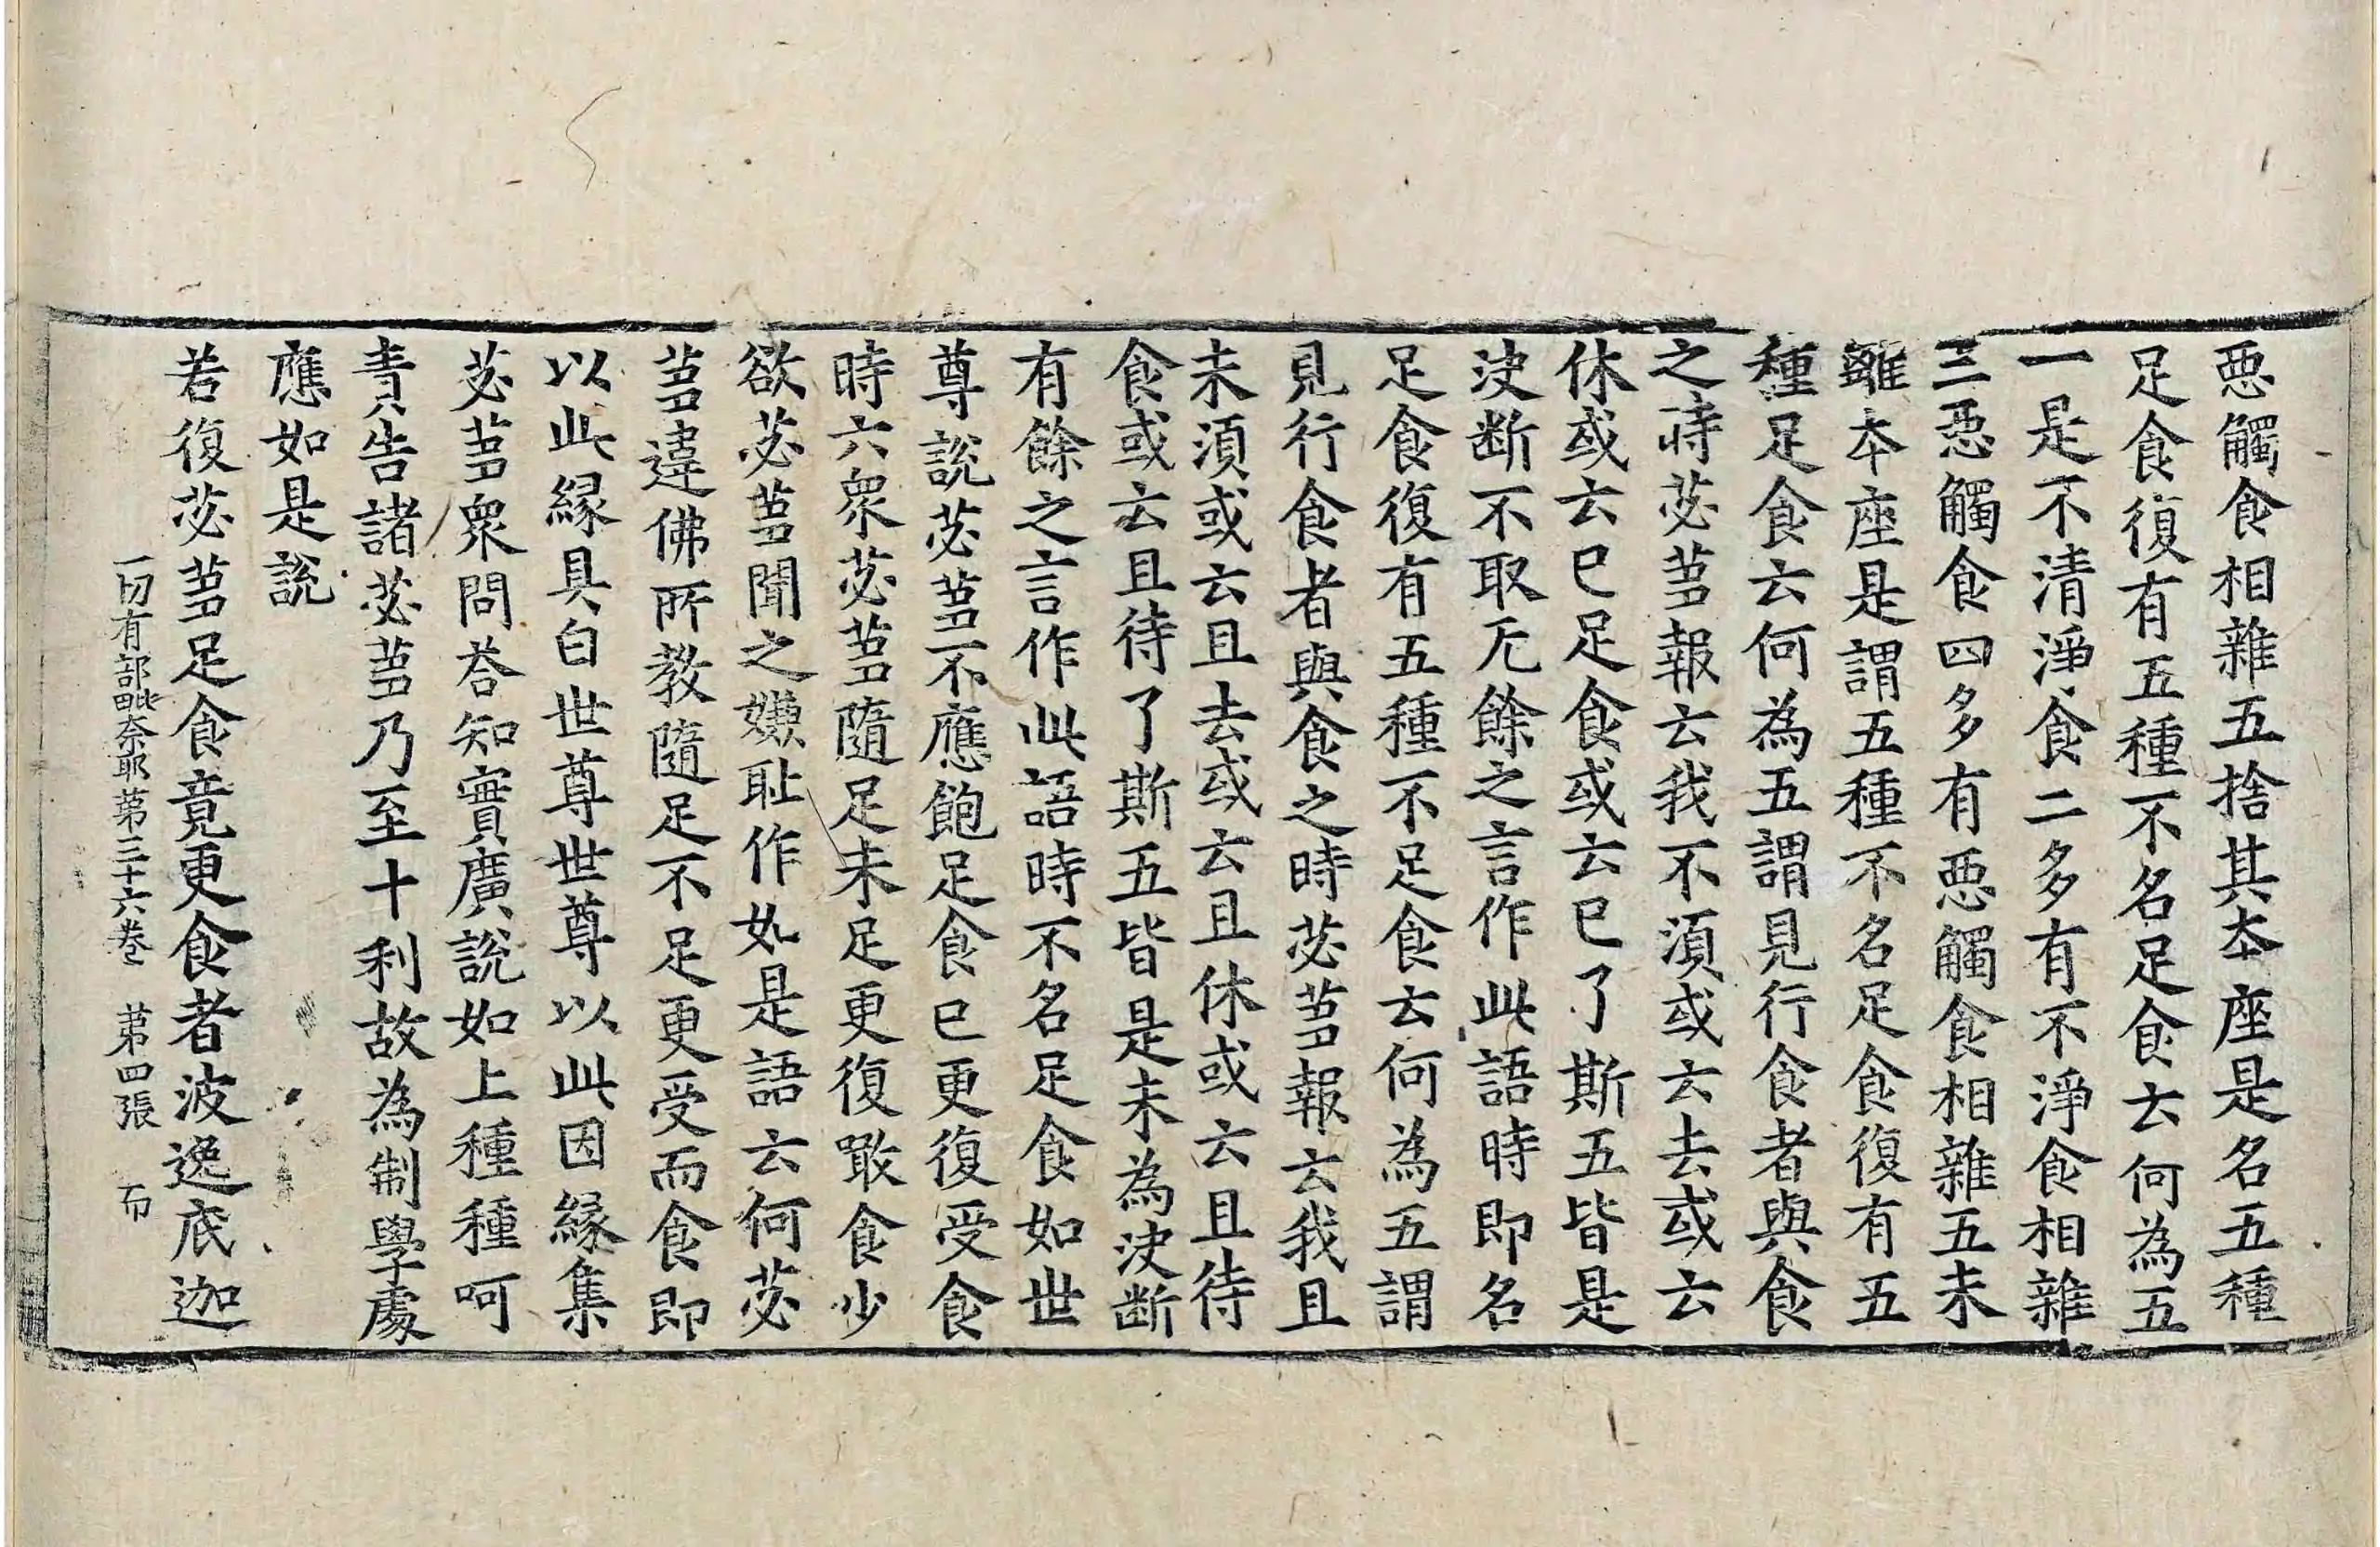 惡觸食相雜五捨其本座是名五種
足食復有五種不名足食云何為五
一是不清淨食二多有不淨食相雜
三惡觸食四多有惡觸食相雜五未
離本座是謂五種不名足食復有五
種足食云何為五謂見行食者與食
之時苾芻報云我不湏或云去或云
休或云已足食或云已了斯五皆是
決断不取无餘之言作此語時即名
足食復有五種不足食云何為五謂
見行食者與食之時苾芻報云我且
未湏或云且去或云且休或云且待
食或云且待了斯五皆是未為決断
有餘之言作此語時不名足食如世
尊說苾芻不應飽足食已更復受食
時六衆苾芻隨足未足更復噉食少
欲苾芻聞之嫌恥作如是語云何苾
芻違佛所教隨足不足更受而食即
以此緣具白世尊世尊以此因緣集
苾芻衆問荅知實廣說如上種種呵
責告諸苾芻乃至十利故為制學處
應如是說
若復苾芻足食竟更食者波逸底迦
一切有部毗奈耶第三十六卷　第四張　布